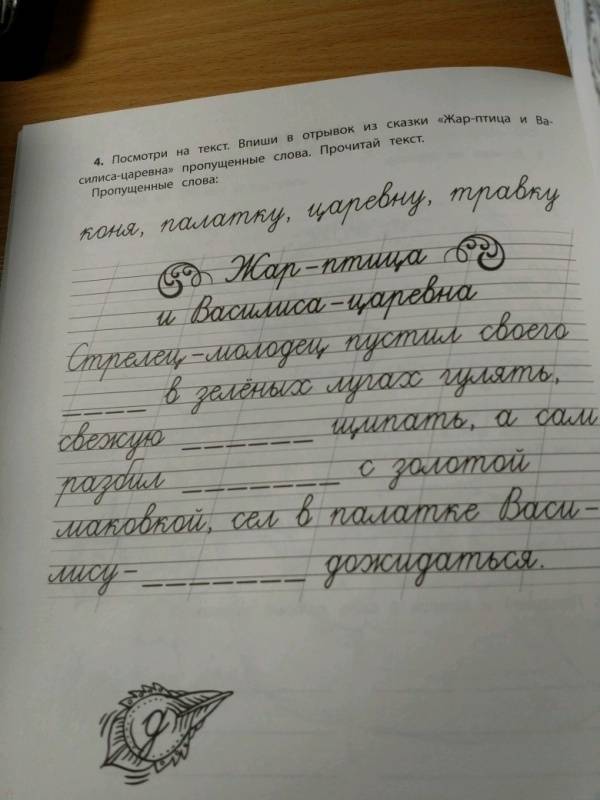 4. Посмотри на текст. Впиши в отрывок из сказки «Жар-птица и Ва-
силиса-царевна» пропущенные слова. Прочитай текст.
Пропущенные слова:
коня, палатку, царевну, травку
Жар-птица
и Василиса-царевна
Стрелец-молодец пустил своего
____ в зелёных лугах гулять,
свежую ______ щипать, а сам
разбил _______ с золотой
маковкой, сел в палатке Васи-
лису-_______ дожидаться.
д